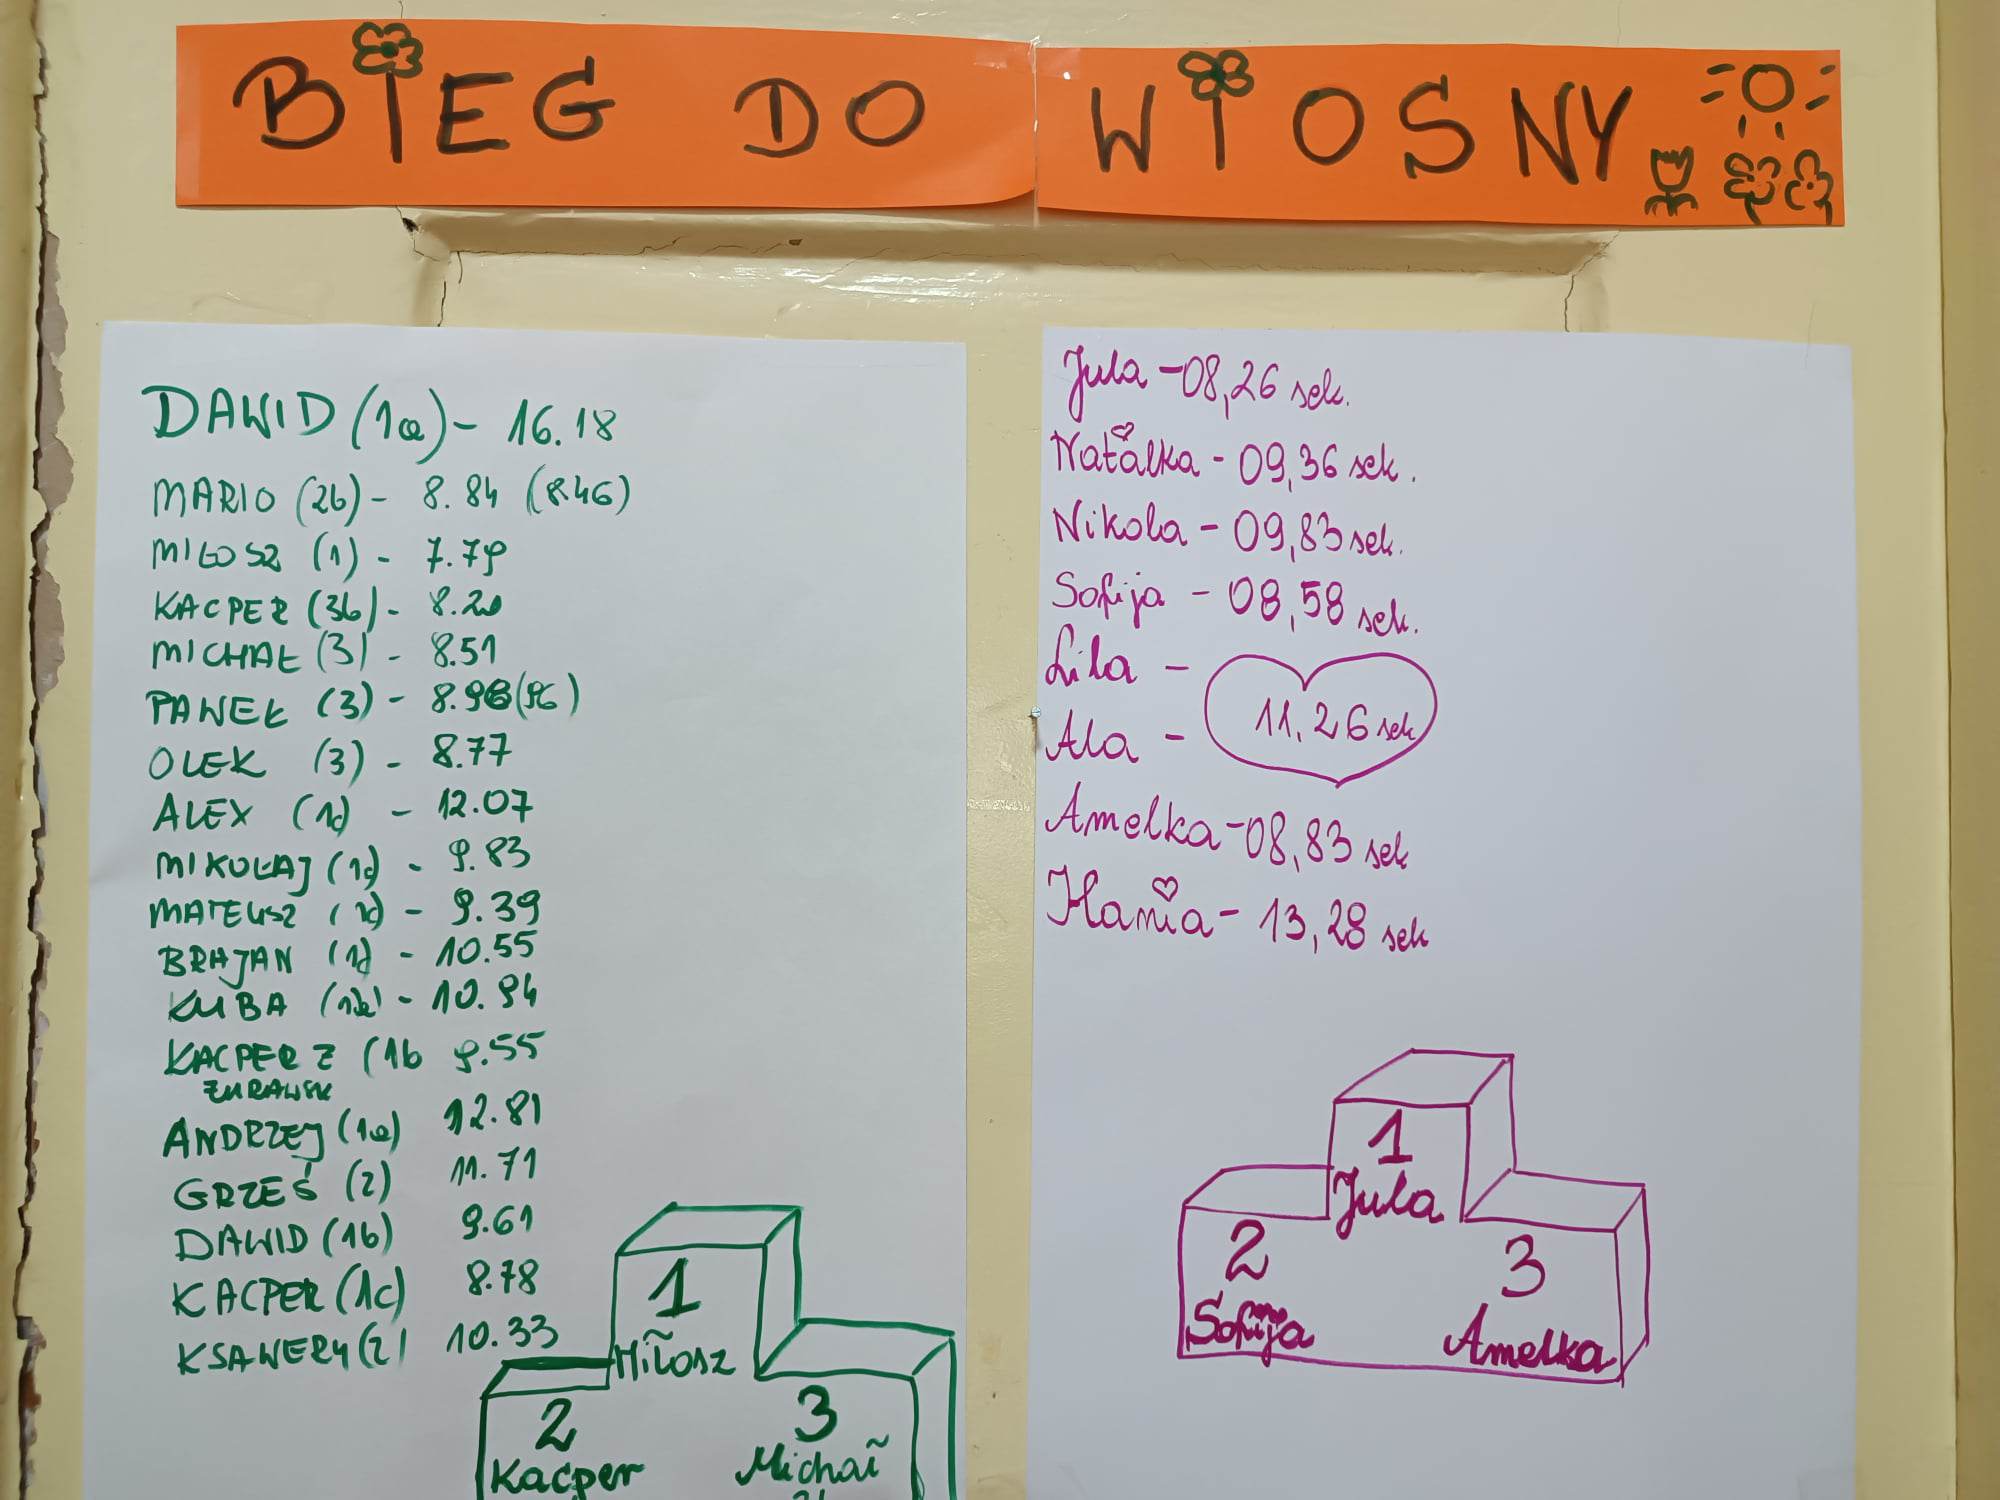 BIEG DO WIOSNY
DAWID (1a) - 16.18
MARIO (2b) - 8.84 (8.46)
MIŁOSZ (1) - 7.79
KACPER (3b) - 8.20
MICHAŁ (3) - 8.51
PAWEŁ (3) - 8.96 (96)
OLEK (3) - 8.77
ALEX (1d) - 12.07
MIKOŁAJ (1d) - 9.83
MATEUSZ - 9.39
BRAJAN (1d) - 10.55
KUBA - 10.94
KACPER Z (1b 9.55
ŻURAWSK
ANDRZEJ (1a) 12.81
GRZEŚ (2) 11.71
DAWID (1b) 9.61
KACPER (1c) 8.78
KSAWERY (2) 10.33
1
Miłosz
2
Kacper
3
Michał
Jula - 08,26 sek.
Natalka - 09,36 sek.
Nikola - 09,83 sek.
Sofija - 08,58 sek.
Lila -
11,26 sek
Ala -
Amelka - 08,83 sek
Hania - 13,28 sek
1
Jula
2
Sofija
3
Amelka